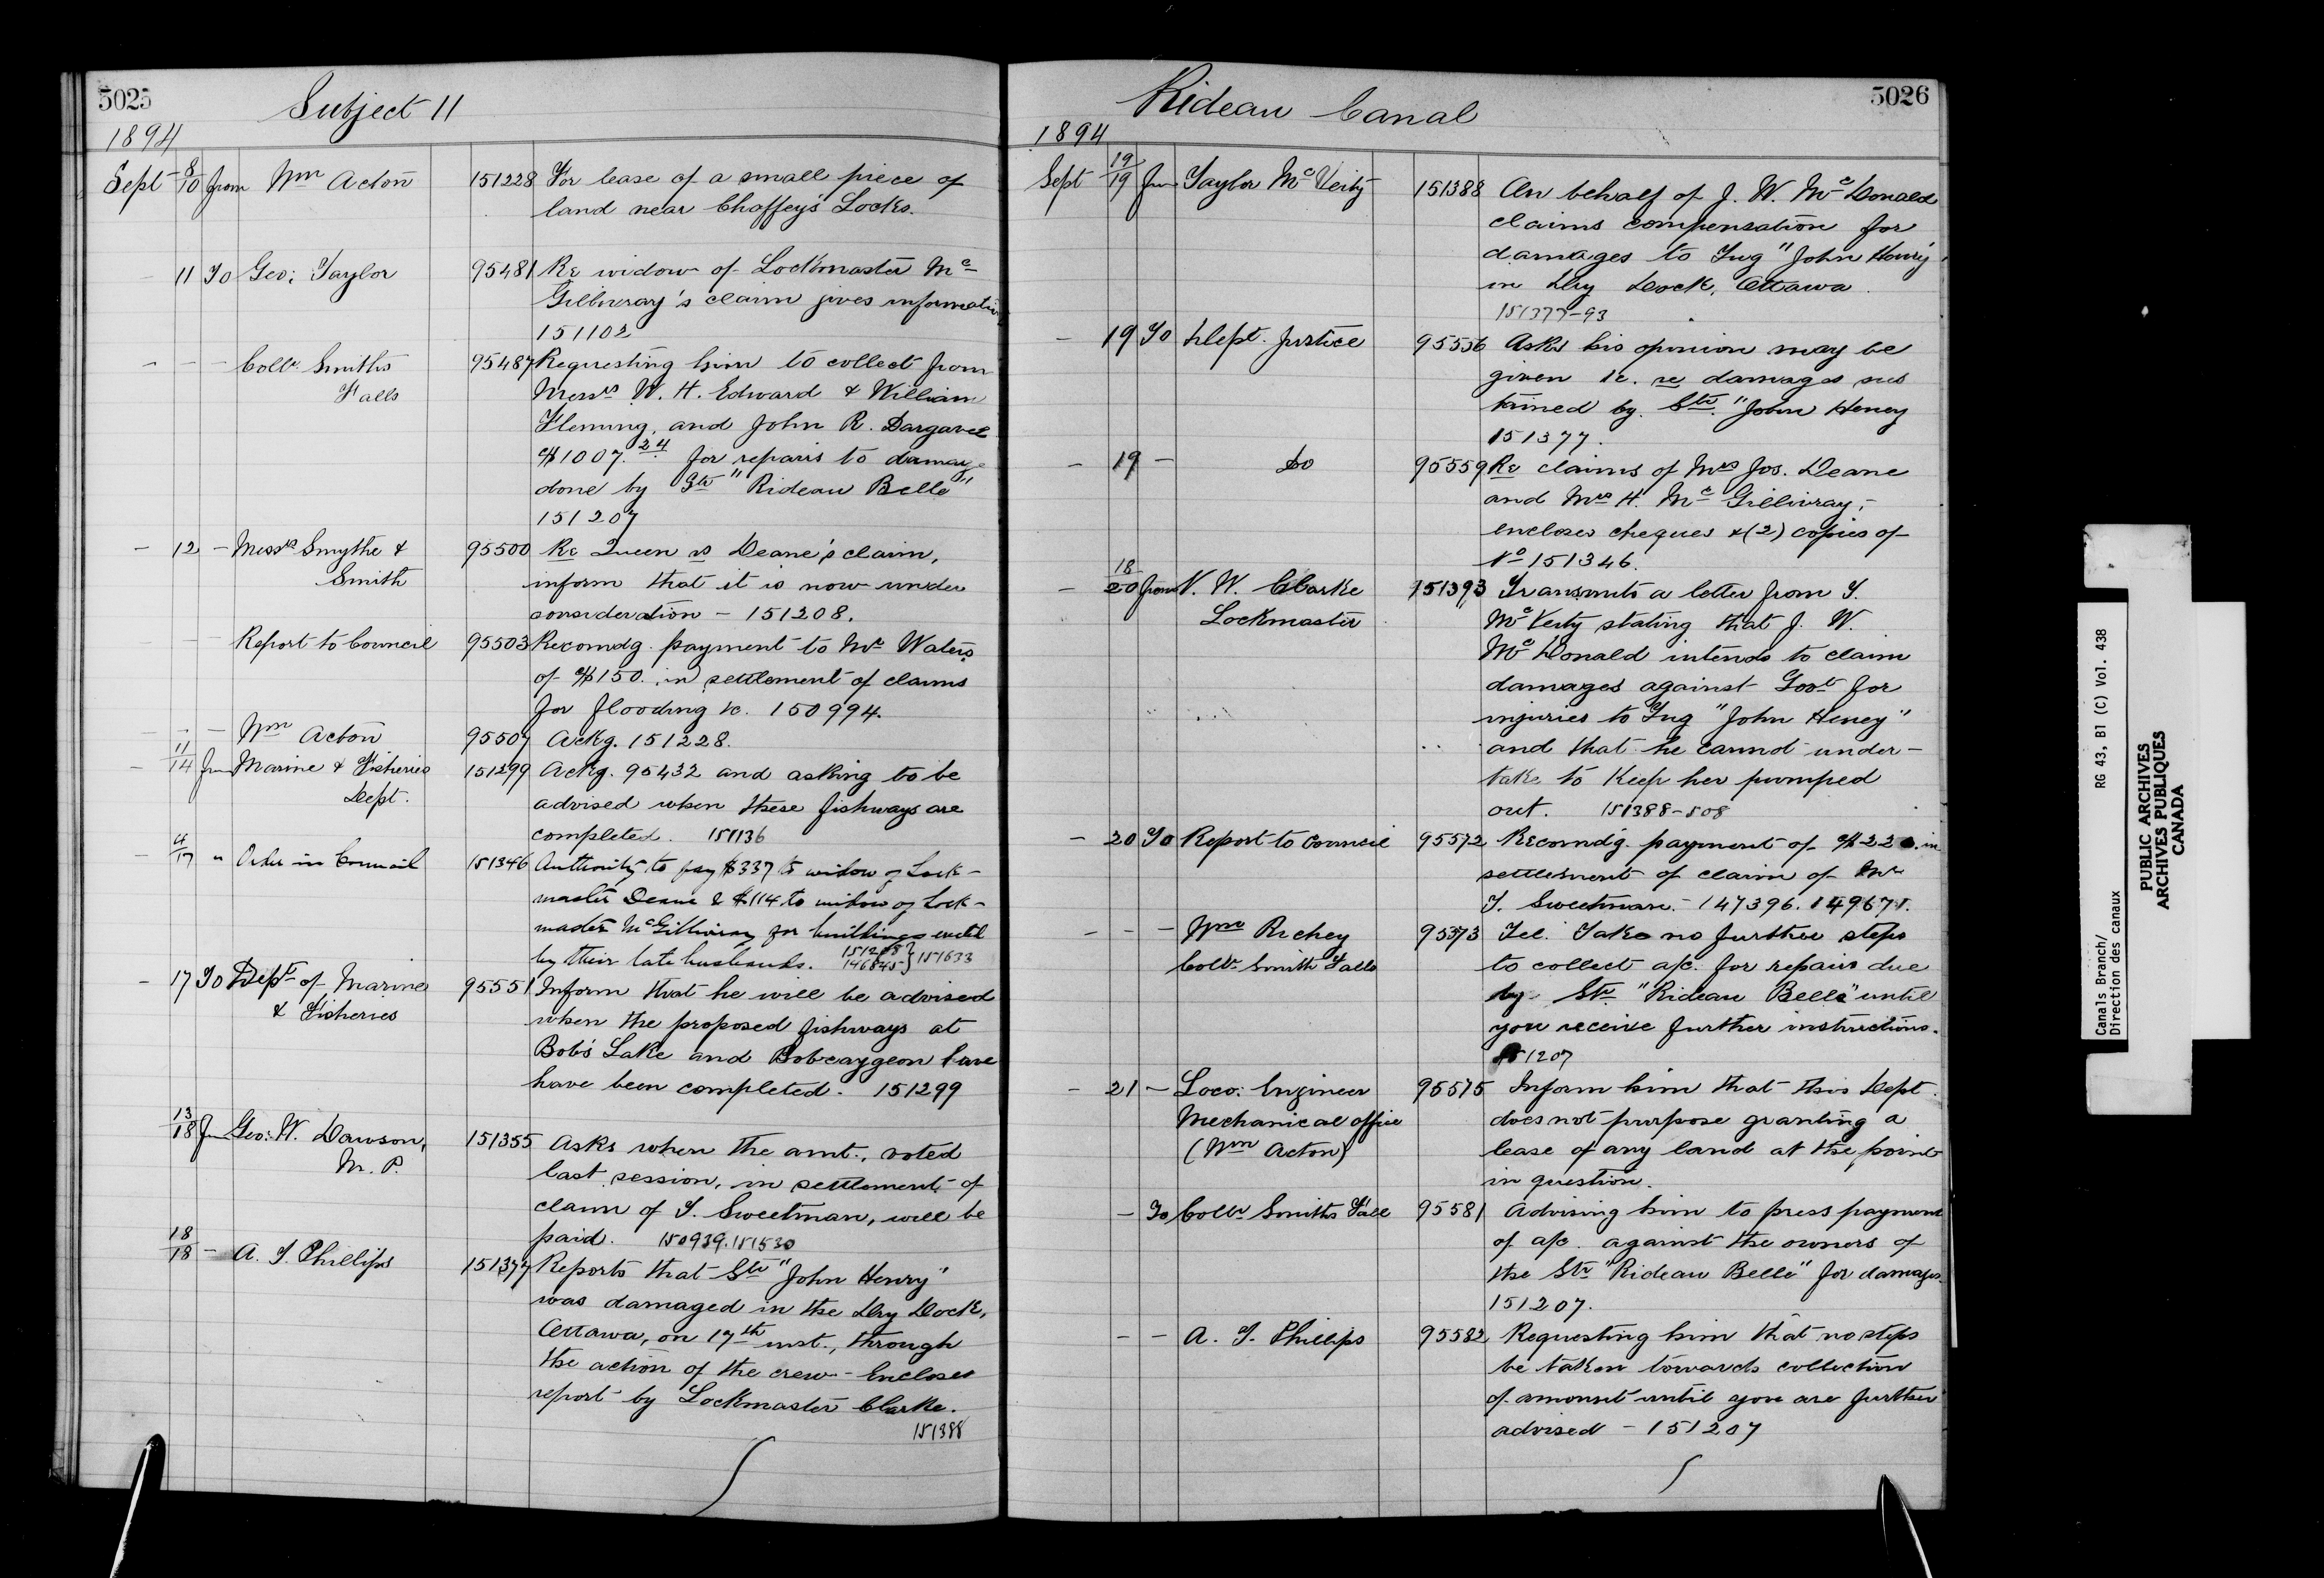 5025
Subject 11
1894
Sept 8/10 from Wm Acton 151228 For lease of a small piece of
land near Chaffey's Locks.
- 11 To Geo: Taylor 95481 Re widow of Lockmaster Mc
Gillivray's claim gives information
151102
- - - Collr. Smiths 95487 Requesting him to collect from
Falls Messrs W. H. Edward & William
Fleming, and John R. Dargavel
$1007.24 for repairs to damage
done by Str "Rideau Belle"
151207
- 12 - Messrs Smythe & 95500 Re Queen vs Deane's claim,
Smith inform that it is now under
consideration - 151208.
- - - Report to Council 95503 Recomdg. payment to Mr Waters
of $150. in settlement of claims
for flooding &c. 150994.
- - - Wm Acton 95507 Ackg. 151228.
- 11/14 from Marine & Fisheries 151299 Ackg. 95432 and asking to be
Dept. advised when these fishways are
completed. 151136
- 4/17 " Order in Council 151346 Authority to pay $337 to widow of Lock-
master Deane & $114 to widow of Lock-
master McGillivray for buildings erected
by their late husbands. 151208 146845 } 151633
- 17 To Dept of Marine 95551 Inform that he will be advised
& Fisheries when the proposed fishways at
Bob's Lake and Bobcaygeon have
have been completed. 151299
13/18 from Geo: W. Dawson, 151355 Asks when the amt., voted
M. P. last session, in settlement of
claim of T. Sweetman, will be
paid. 150939. 151530
18/18 - A. T. Phillips 151377 Reports that Str "John Henry"
was damaged in the Dry Dock,
Ottawa, on 17th inst., through
the action of the crew - Encloses
report by Lockmaster Clarke.
151388
Rideau Canal
5026
1894
Sept 19/19 from Taylor McVeity 151388 On behalf of J. W. McDonald
claims compensation for
damages to Tug "John Henry"
in Dry Dock, Ottawa.
151377-93
- 19 To Dept. Justice 95556 Asks his opinion may be
given &c. re damages sus
tained by Str. "John Heney
151377.
- 19 - Do 95559 Re claims of Mrs Jos. Deane
and Mrs H. McGillivray;
encloses cheques & (2) copies of
No 151346.
- 18/20 from N. W. Clarke 151393 Transmits a letter from T.
Lockmaster McVeity stating that J. W.
McDonald intends to claim
damages against Govt for
injuries to Tug "John Heney"
and that he cannot under-
take to keep her pumped
out. 151388-508
- 20 To Report to Council 95572 Recomdg. payment of $220. in
settlement of claim of Mr
T. Sweetman. - 147396. 149671.
- - - Wm Richey 95573 Tel. Take no further steps
Collr Smith Falls to collect a/c. for repairs due
by Str "Rideau Belle" until
you receive further instructions.
151207
- 21 - Loco: Engineer 95575 Inform him that this Dept.
Mechanical office does not purpose granting a
(Wm Acton) lease of any land at the point
in question.
- To Collr Smiths Fall 95581 Advising him to press payment
of a/c. against the owners of
the Str "Rideau Belle" for damages.
151207.
- - A. T. Phillips 95582 Requesting him that no steps
be taken towards collection
of amount until you are further
advised - 151207
Canals Branch/ RG 43, B1 (C) Vol. 438
Direction des canaux
PUBLIC ARCHIVES
ARCHIVES PUBLIQUES
CANADA